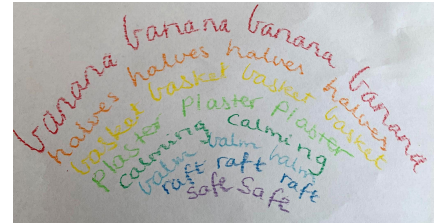 banana banana banana banana
halves halves halves halves
basket basket basket basket
Plaster Plaster Plaster
calming calming
balm balm balm
raft raft raft
safe safe